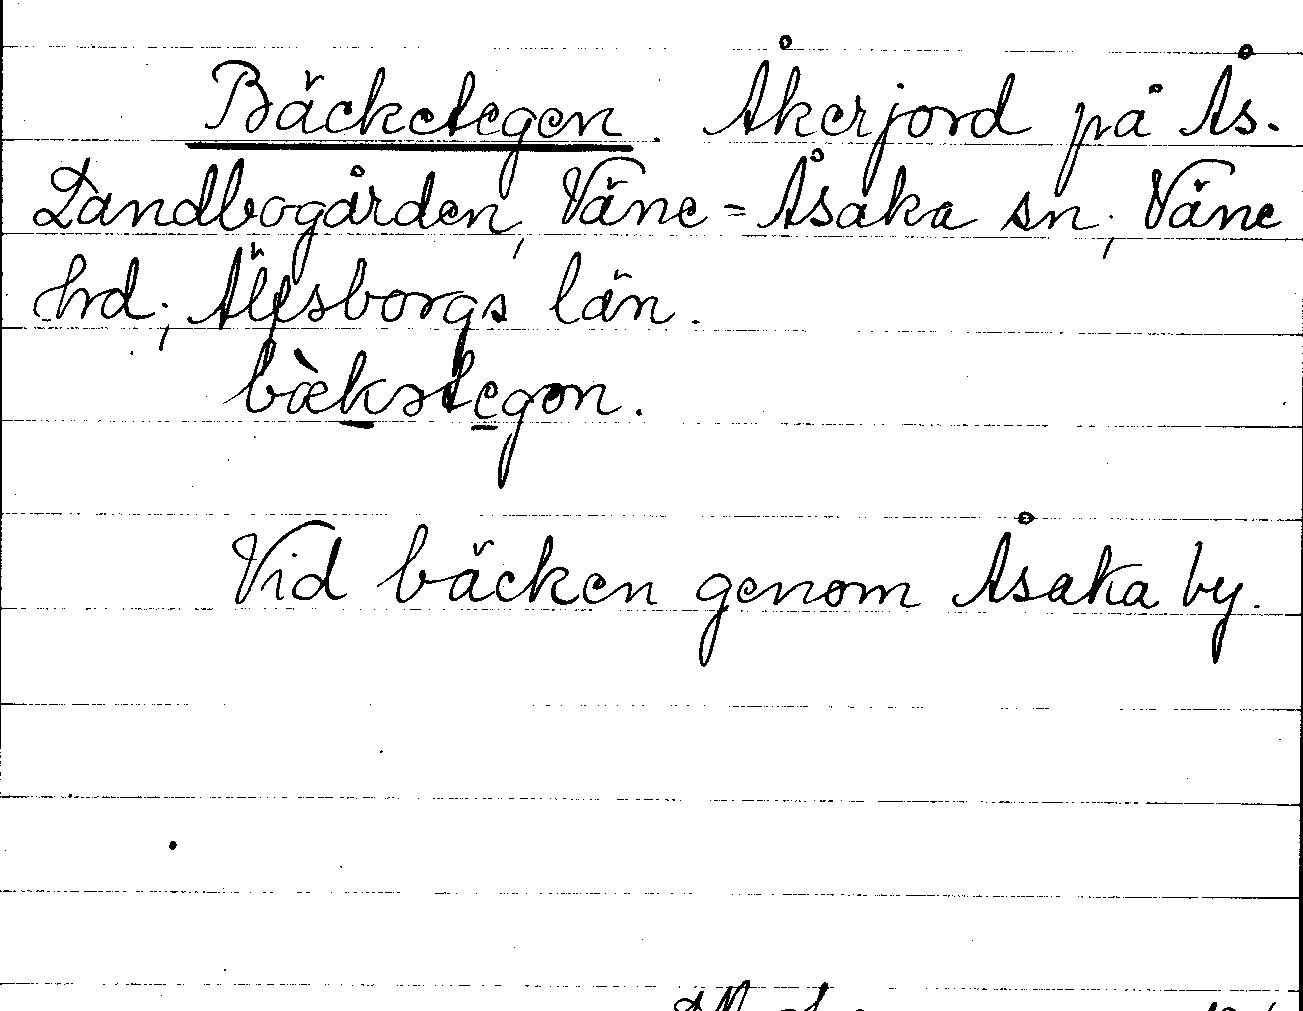 Bäcketegen. Åkerjord på Ås.
Landbogården, Väne-Åsaka sn, Väne
hd, Älfsborgs län.
bæ̀kətegən.
Vid bäcken genom Åsaka by.